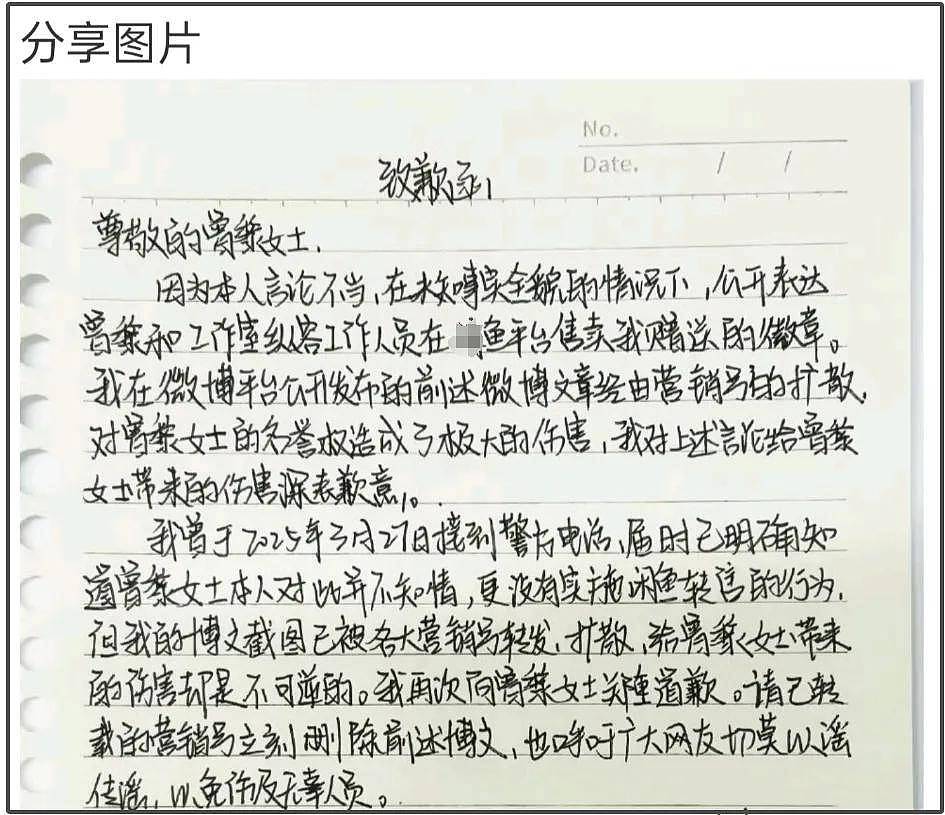 分享图片
No.
Date. / /
致歉函
尊敬的曾黎女士.
因为本人言论不当,在未知事实全貌的情况下,公开表达
曾黎和工作室纵容工作人员在 鱼平台售卖我赠送的徽章。
我在微博平台公开发布的前述微博文章经由营销号的扩散,
对曾黎女士的名誉权造成了极大的伤害,我对上述言论给曾黎
女士带来的伤害深表歉意。
我曾于2025年3月27日接到警方电话,届时已明确知
道曾黎女士本人对此并不知情,更没有实施闲鱼转售的行为,
但我的博文截图已被各大营销号转发,扩散,给曾黎女士带来
的伤害却是不可逆的。我再次向曾黎女士郑重道歉。请已转
载的营销号立刻删除前述博文,也呼吁广大网友切莫以谣
传谣,以免伤及无辜人员。